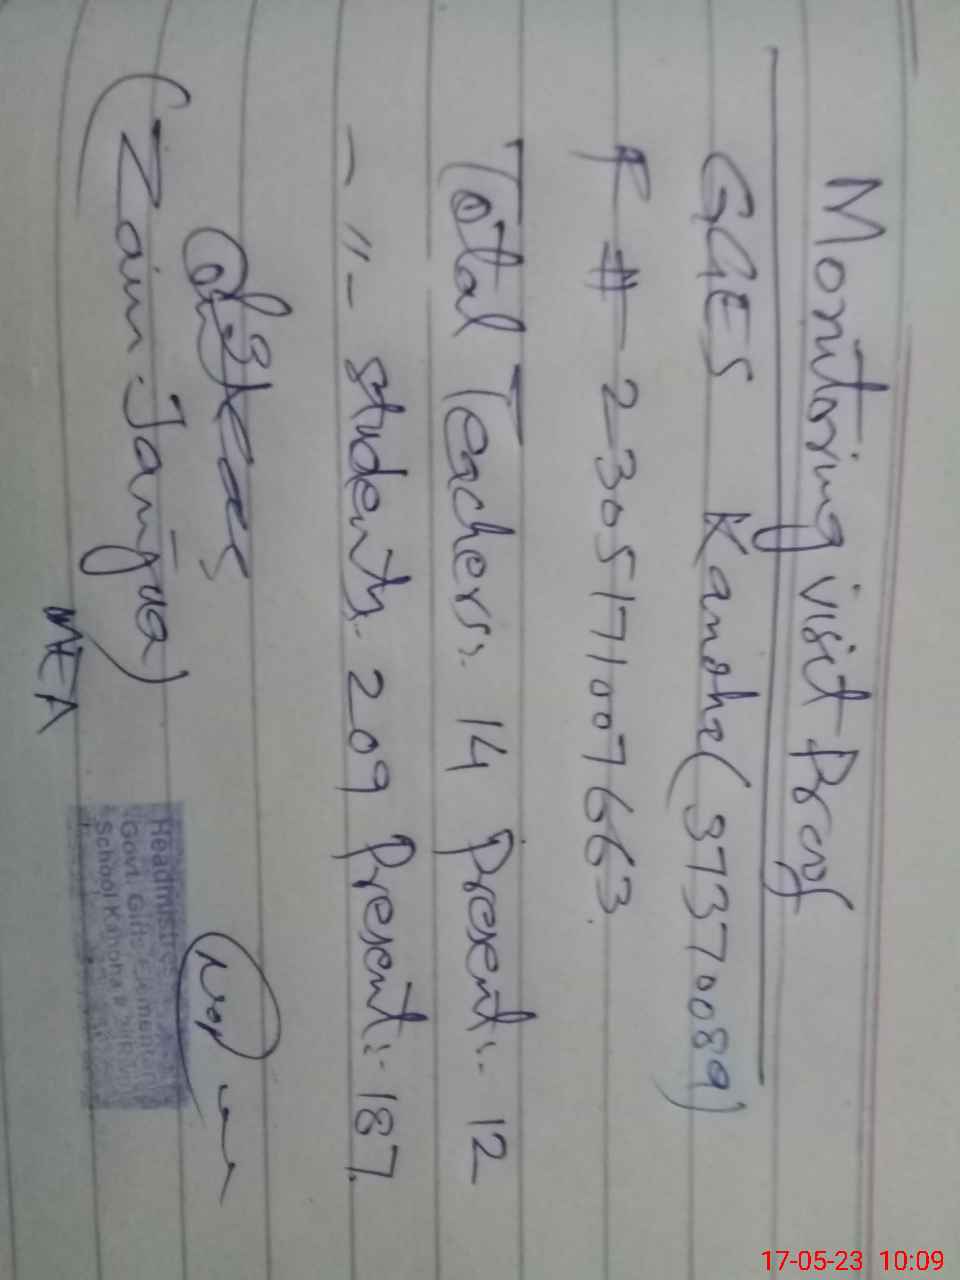 Monitoring visit Proof
GGES Kanoha (37370089)
F # 2305171007663.
Total Teachers:. 14 Present:. 12
-"- students. 209 Present:. 187.
(Zain Janjua)
MEA
Headmistress
Govt. Girls Elementary
School Kanoha
17-05-23 10:09